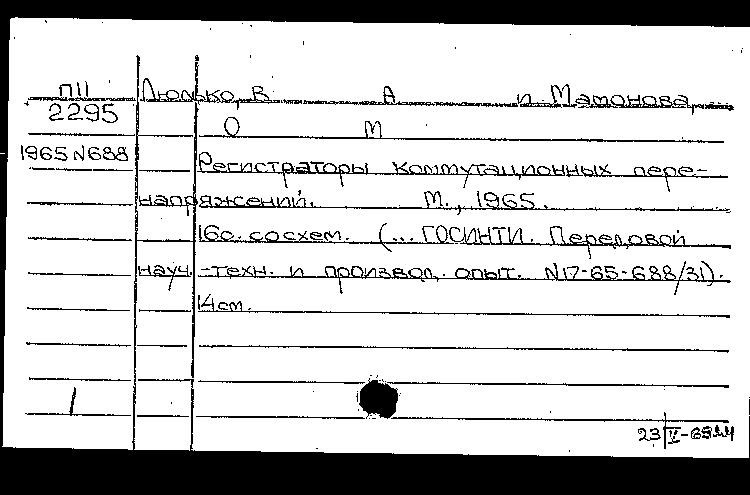 П11 Люлько, В А и Мамонова,
2295
О М
1965 N688 Регистраторы коммутационных пере-
напряжений. М., 1965.
16с. со схем. (... ГОСИНТИ. Передовой
науч.-техн. и производ. опыт. N17-65-688/31).
14 см.
1
23 V-65